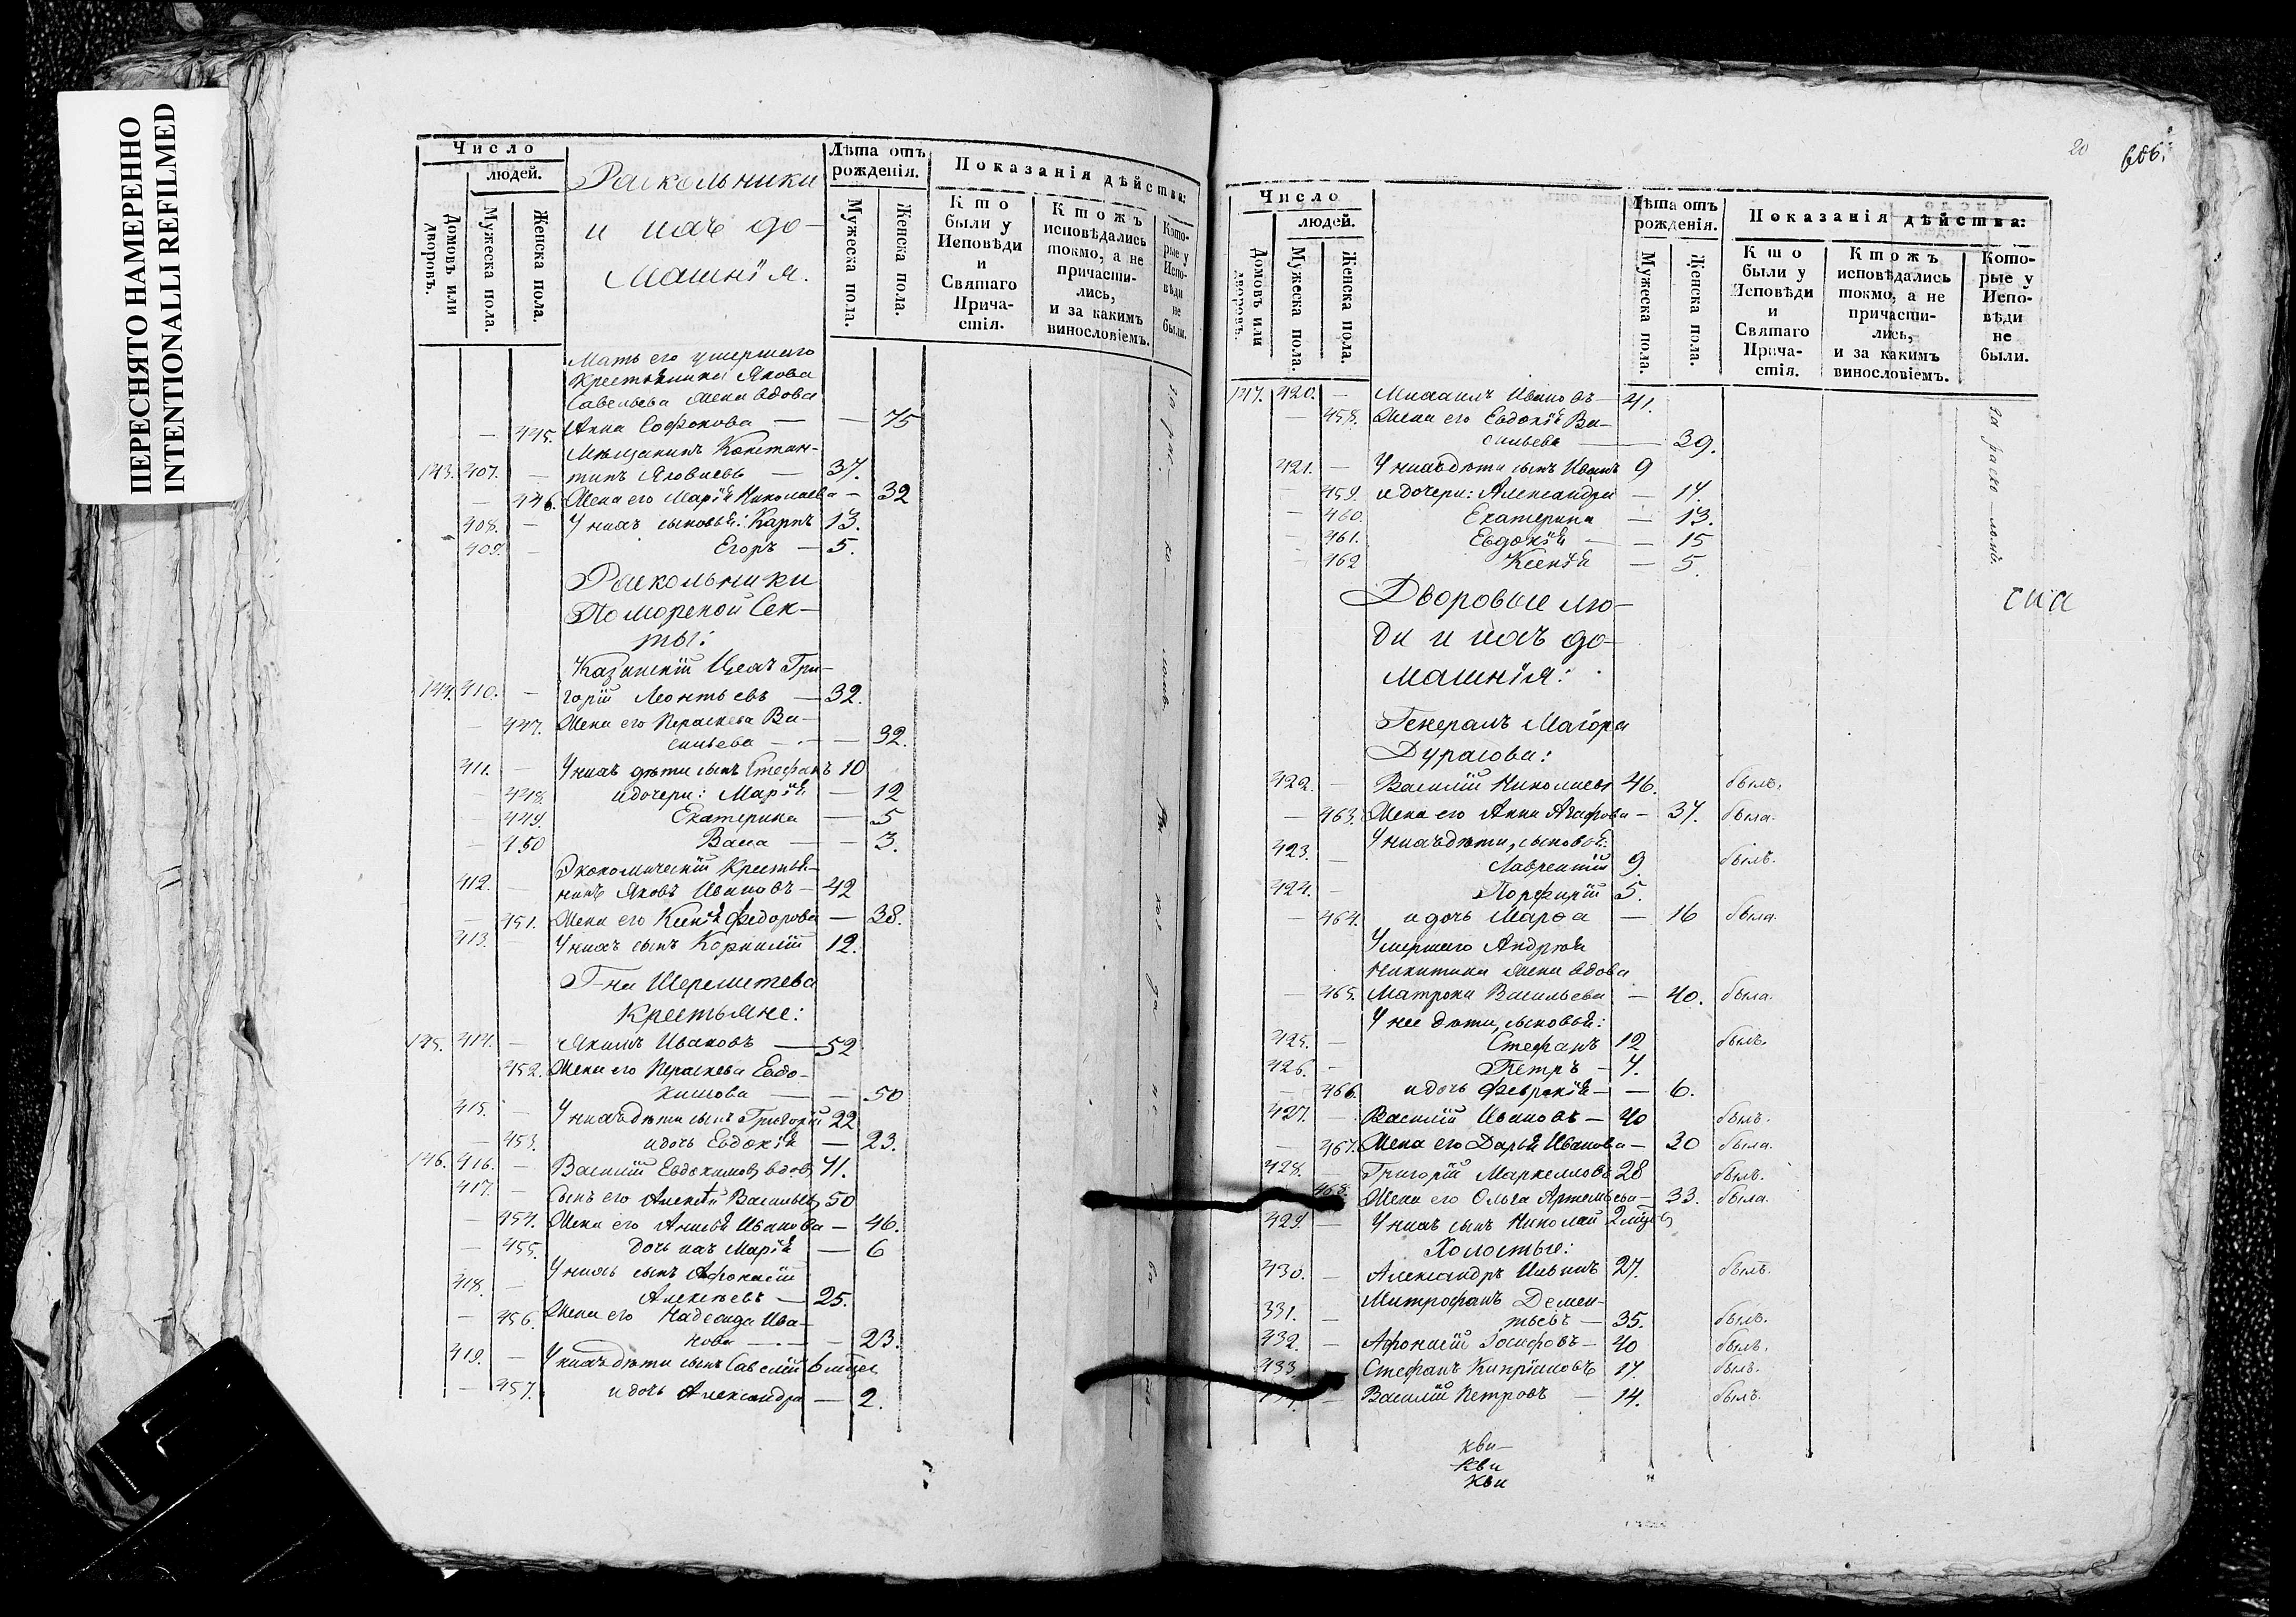 ПЕРЕСНЯТО НАМЕРЕННО
INTENTIONALLI REFILMED
Число
людей.
Домовъ или дворовъ.
Мужеска пола.
Женска пола.
Раскольники
и ихъ до-
машнія.
Лѣта отъ рожденія.
Мужеска пола.
Женска пола.
Показанія дѣйства:
Кто были у Исповѣди и Святаго Прича-стія.
Ктожъ исповѣдались токмо, а не причасти-лись, и за какимъ винословіемъ.
Кото-рые у Испо-вѣди не были.
Мать его умершаго
Крестьянина Якова
Савельева жена вдова
445. Анна Софонова — — 75
Мѣщанинъ Констан-
143. 407. — тинъ Яковлевъ — 37.
— 446. Жена его Марія Николаева — 32
408. — У нихъ сыновья: Карпъ 13.
409. — Егоръ — 5.
Раскольники
Поморской Сек-
ты:
Казенный Цеха Гри-
144. 410. — горій Леонтьевъ — 32.
— 447. Жена его Параскева Ва-
сильева — — 32.
411. — У нихъ дѣти сынъ Стефанъ 10
— 448. и дочери: Марія — 12
— 449. Екатерина — 5
— 450 Васа — — 3.
Экономическій Крестья-
412. — нинъ Яковъ Ивановъ — 42
— 451. Жена его Ксенія Федорова — 38.
413. — У нихъ сынъ Корнилій 12.
Г-на Шереметева
Крестьяне:
145. 414. — Якимъ Ивановъ — 52
452. Жена его Параскева Евдо-
кимова — — 50
415. — У нихъ дѣти сынъ Григорій 22
— 453. и дочь Евдокія — 23.
146. 416. — Василій Евдокимовъ вдовъ 71.
417. — Сынъ его Алексѣй Васильевъ 50
— 454. Жена его Анисья Иванова — 46.
— 455. дочь ихъ Марія — 6
У нихъ сынъ Афонасій
418. — Алексѣевъ — 25.
— 456. Жена его Надежда Ива-
нова — — 23.
419. — У нихъ дѣти сынъ Савелій 6 мѣсе
— 457. и дочь Александра — 2.
20
606.
Число
людей.
Домовъ или дворовъ.
Мужеска пола.
Женска пола.
Лѣта отъ рожденія.
Мужеска пола.
Женска пола.
Показанія дѣйства:
Кто были у Исповѣди и Святаго Прича-стія.
Ктожъ исповѣдались токмо, а не причасти-лись, и за какимъ винословіемъ.
Кото-рые у Испо-вѣди не были.
147. 420. — Михаилъ Ивановъ — 41.
— 458. Жена его Евдокія Ва-
сильева — — 39.
421. — У нихъ дѣти сынъ Иванъ 9
459. и дочери: Александра — 17.
— 460. Екатерина — 13.
— 461. Евдокія — — 15
— 462 Ксенія — 5.
за раско ломъ.
Дворовые лю-
ди и ихъ до-
машнія:
Генералъ Маіора
Дурасова:
422. — Василій Николаевъ 46. былъ.
— 463. Жена его Анна Агафова — 37. была.
У нихъ дѣти, сыновья:
423. — Лаврентій 9. былъ.
424. — Порфирій 5.
— 464. и дочь Марѳа — 16 была.
Умершаго Андрея
Никитина жена вдова
— 465. Матрона Васильева — 40. была.
У нее дѣти, сыновья:
425. — Стефанъ 12 былъ.
426. — Петръ — 7.
— 466. и дочь Февронія — — 6.
427. — Василій Ивановъ — 40 былъ.
— 467. Жена его Дарья Иванова — 30 была.
428. — Григорій Маркелловъ 28 былъ.
468. Жена его Ольга Артемьева — 33. была.
429. — У нихъ сынъ Николай 2 мѣс
Холостые:
430. — Александръ Ильинъ 27. былъ.
Митрофанъ Демен-
331. — тьевъ — 35. былъ.
432. — Афонасій Іосифовъ — 40 былъ.
433 Стефанъ Кипріановъ 17. былъ.
— Василій Петровъ — 14. былъ.
кви-
кви
кви